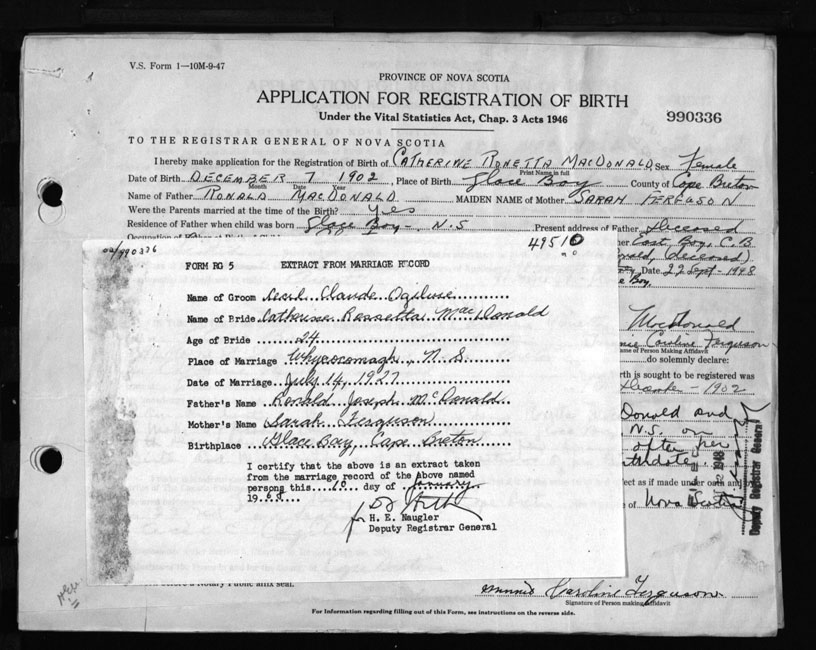 V.S. Form 1—10M-9-47
PROVINCE OF NOVA SCOTIA
APPLICATION FOR REGISTRATION OF BIRTH
Under the Vital Statistics Act, Chap. 3 Acts 1946
990336
TO THE REGISTRAR GENERAL OF NOVA SCOTIA
I hereby make application for the Registration of Birth of CATHERINE RONETTA MACDONALD Sex Female
Print Name in full
Date of Birth DECEMBER 7 1902, Place of Birth Glace Bay County of Cape Breton
Month Date Year
Name of Father RONALD MACDONALD MAIDEN NAME of Mother SARAH FERGUSON
Were the Parents married at the time of the Birth? yes
Residence of Father when child was born Glace Bay - N.S Present address of Father Deceased
East Bay, C.B
(deceased)
Date 22 Sept - 1948
Bay,
MacDonald
Caroline Ferguson
Name of Person Making Affidavit
do solemnly declare:
Birth is sought to be registered was
1902
Donald and
N.S. on
after her
birthdate
effect as if made under oath and
of Nova Scotia
1948
Deputy Registrar General
990336
49510
FORM RG 5 EXTRACT FROM MARRIAGE RECORD
Name of Groom Cecil Claude Ogilvie
Name of Bride Catherine Rossetta MacDonald
Age of Bride 24
Place of Marriage Whycocomagh, N.S
Date of Marriage July 14, 1927
Father's Name Ronald Joseph McDonald
Mother's Name Sarah Ferguson
Birthplace Glace Bay, Cape Breton
I certify that the above is an extract taken
from the marriage record of the above named
persons this 10 day of January
1968
for H. E. Naugler
Deputy Registrar General
before a Notary Public affix seal.
Minnie Caroline Ferguson
Signature of Person making Affidavit
For Information regarding filling out of this Form, see instructions on the reverse side.